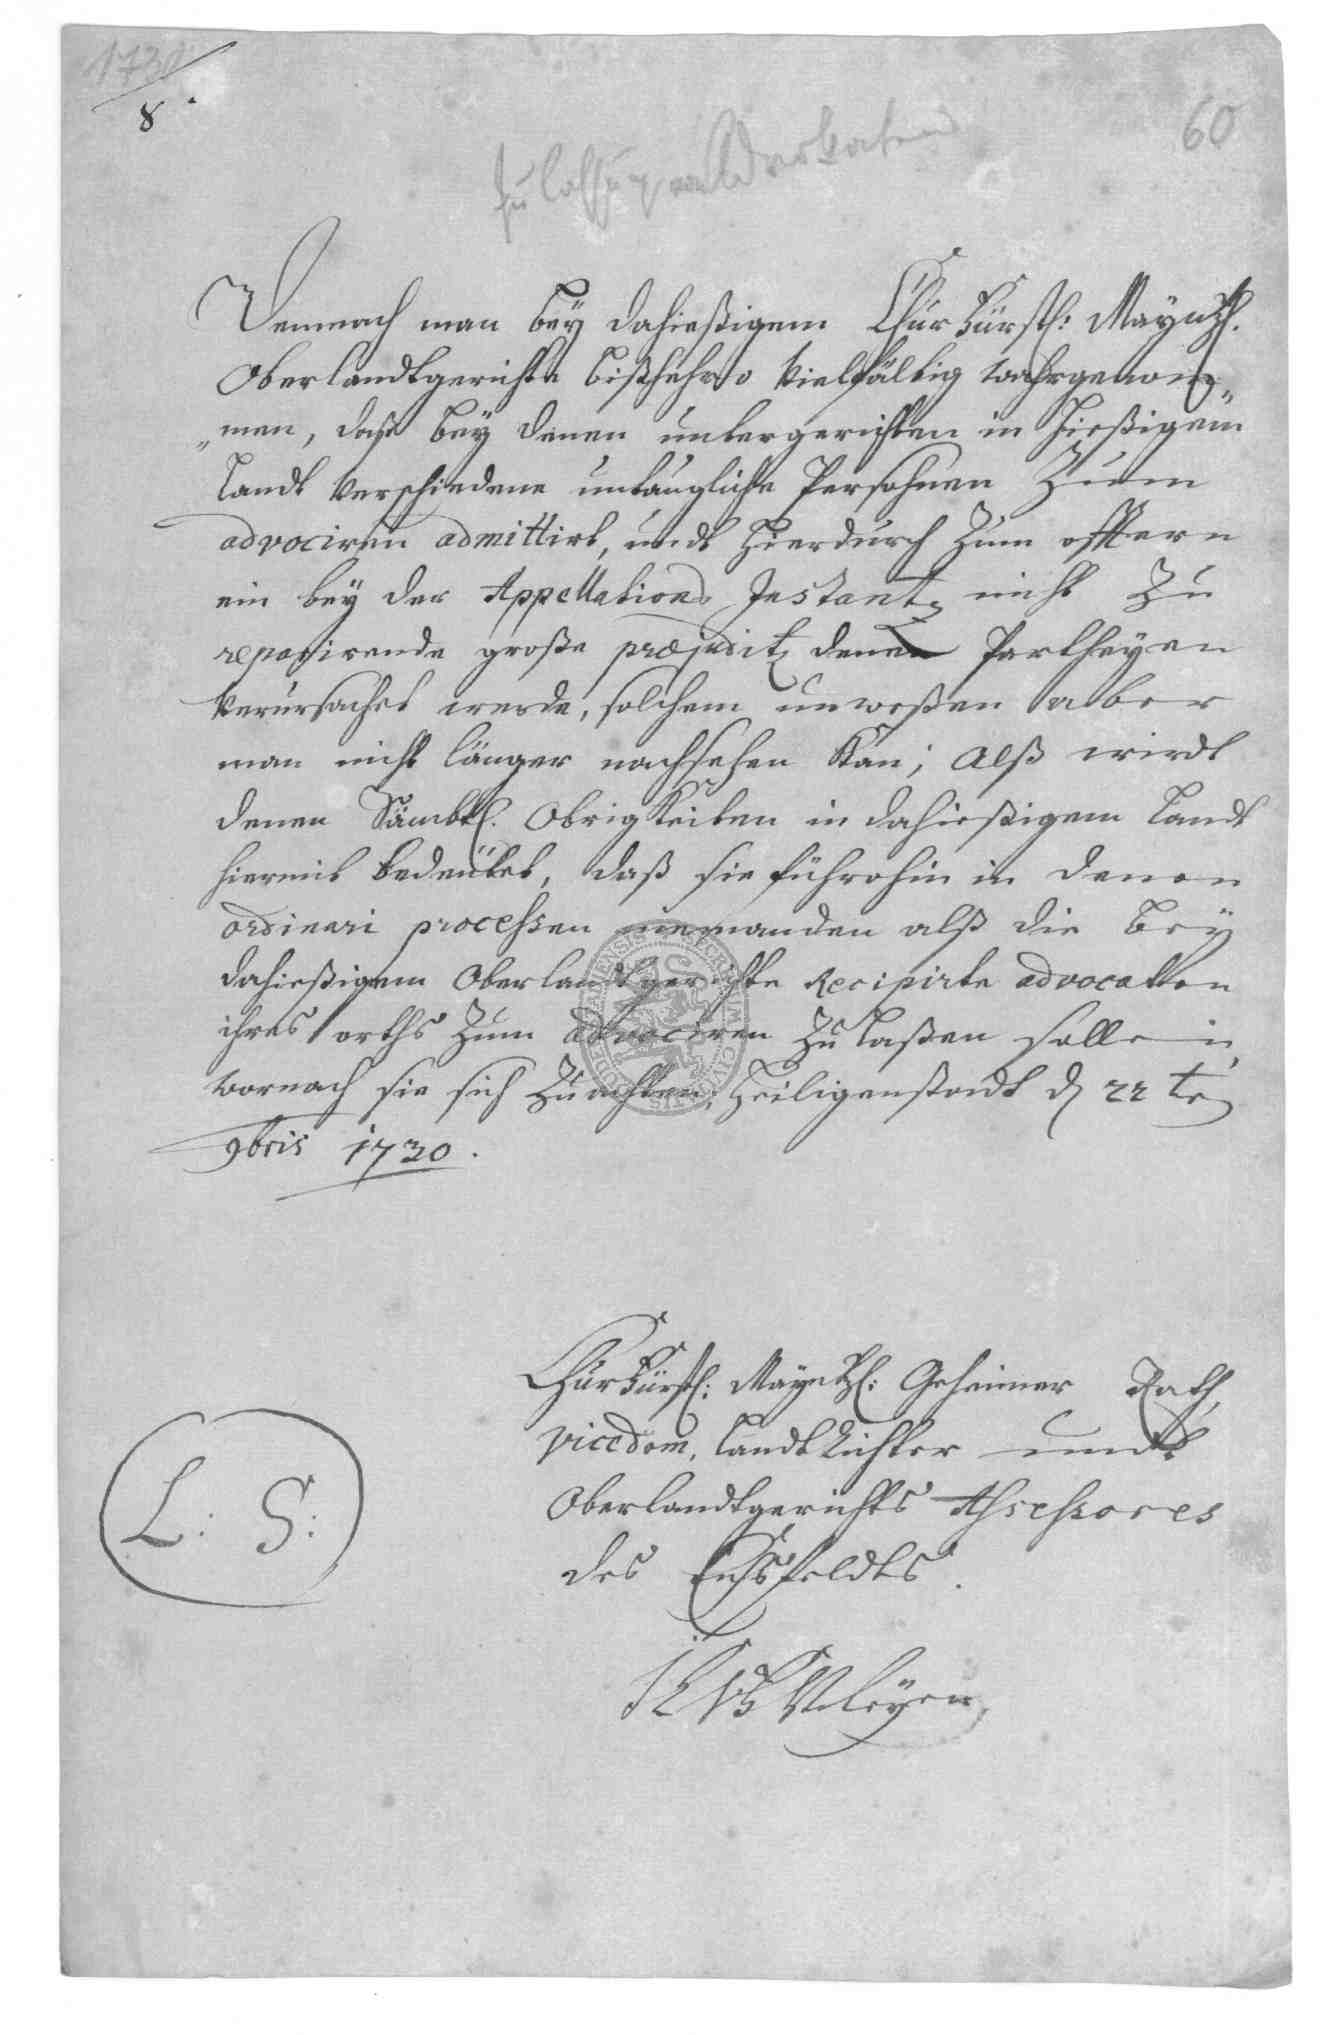 1730
8.
60
Zulassung von Advokaten
Demnach man beÿ dahießigem ChurFürstl: Mayntzl.
Oberlandtgerichte bißhehro vielfältig wahrgenom„
„men, dasß beÿ denen untergerichten in hießigem
Landt verschiedene untaugliche Persohnen Zum
advociren admittirt, undt hierdurch Zum öfftern
ein beÿ der Appellations Instantz nicht Zu
reparirende große præjuditz denen Partheyen
verursachet werde, solchem unweßen aber
man nicht länger nachsehen kan; Alß wirdt
denen Sämbtl. Obrigkeiten in dahießigem Landt
hiermit bedeütet, daß sie führohin in denen
ordinari processen niemanden alß die beÿ
dahießigem Oberlandtgerichte Recipirte advocatten
ihres orths Zum advociren Zu laßen sollen,
wornach sie sich Zu achten; Heiligenstadt d 22 te
9bris 1730.
ChurFürstl: Mayntzl: Geheimer Rath,
Vicedom, Landt Richter undt
Oberlandtgerichts Assessores
des Eichsfeldts.
L: S: